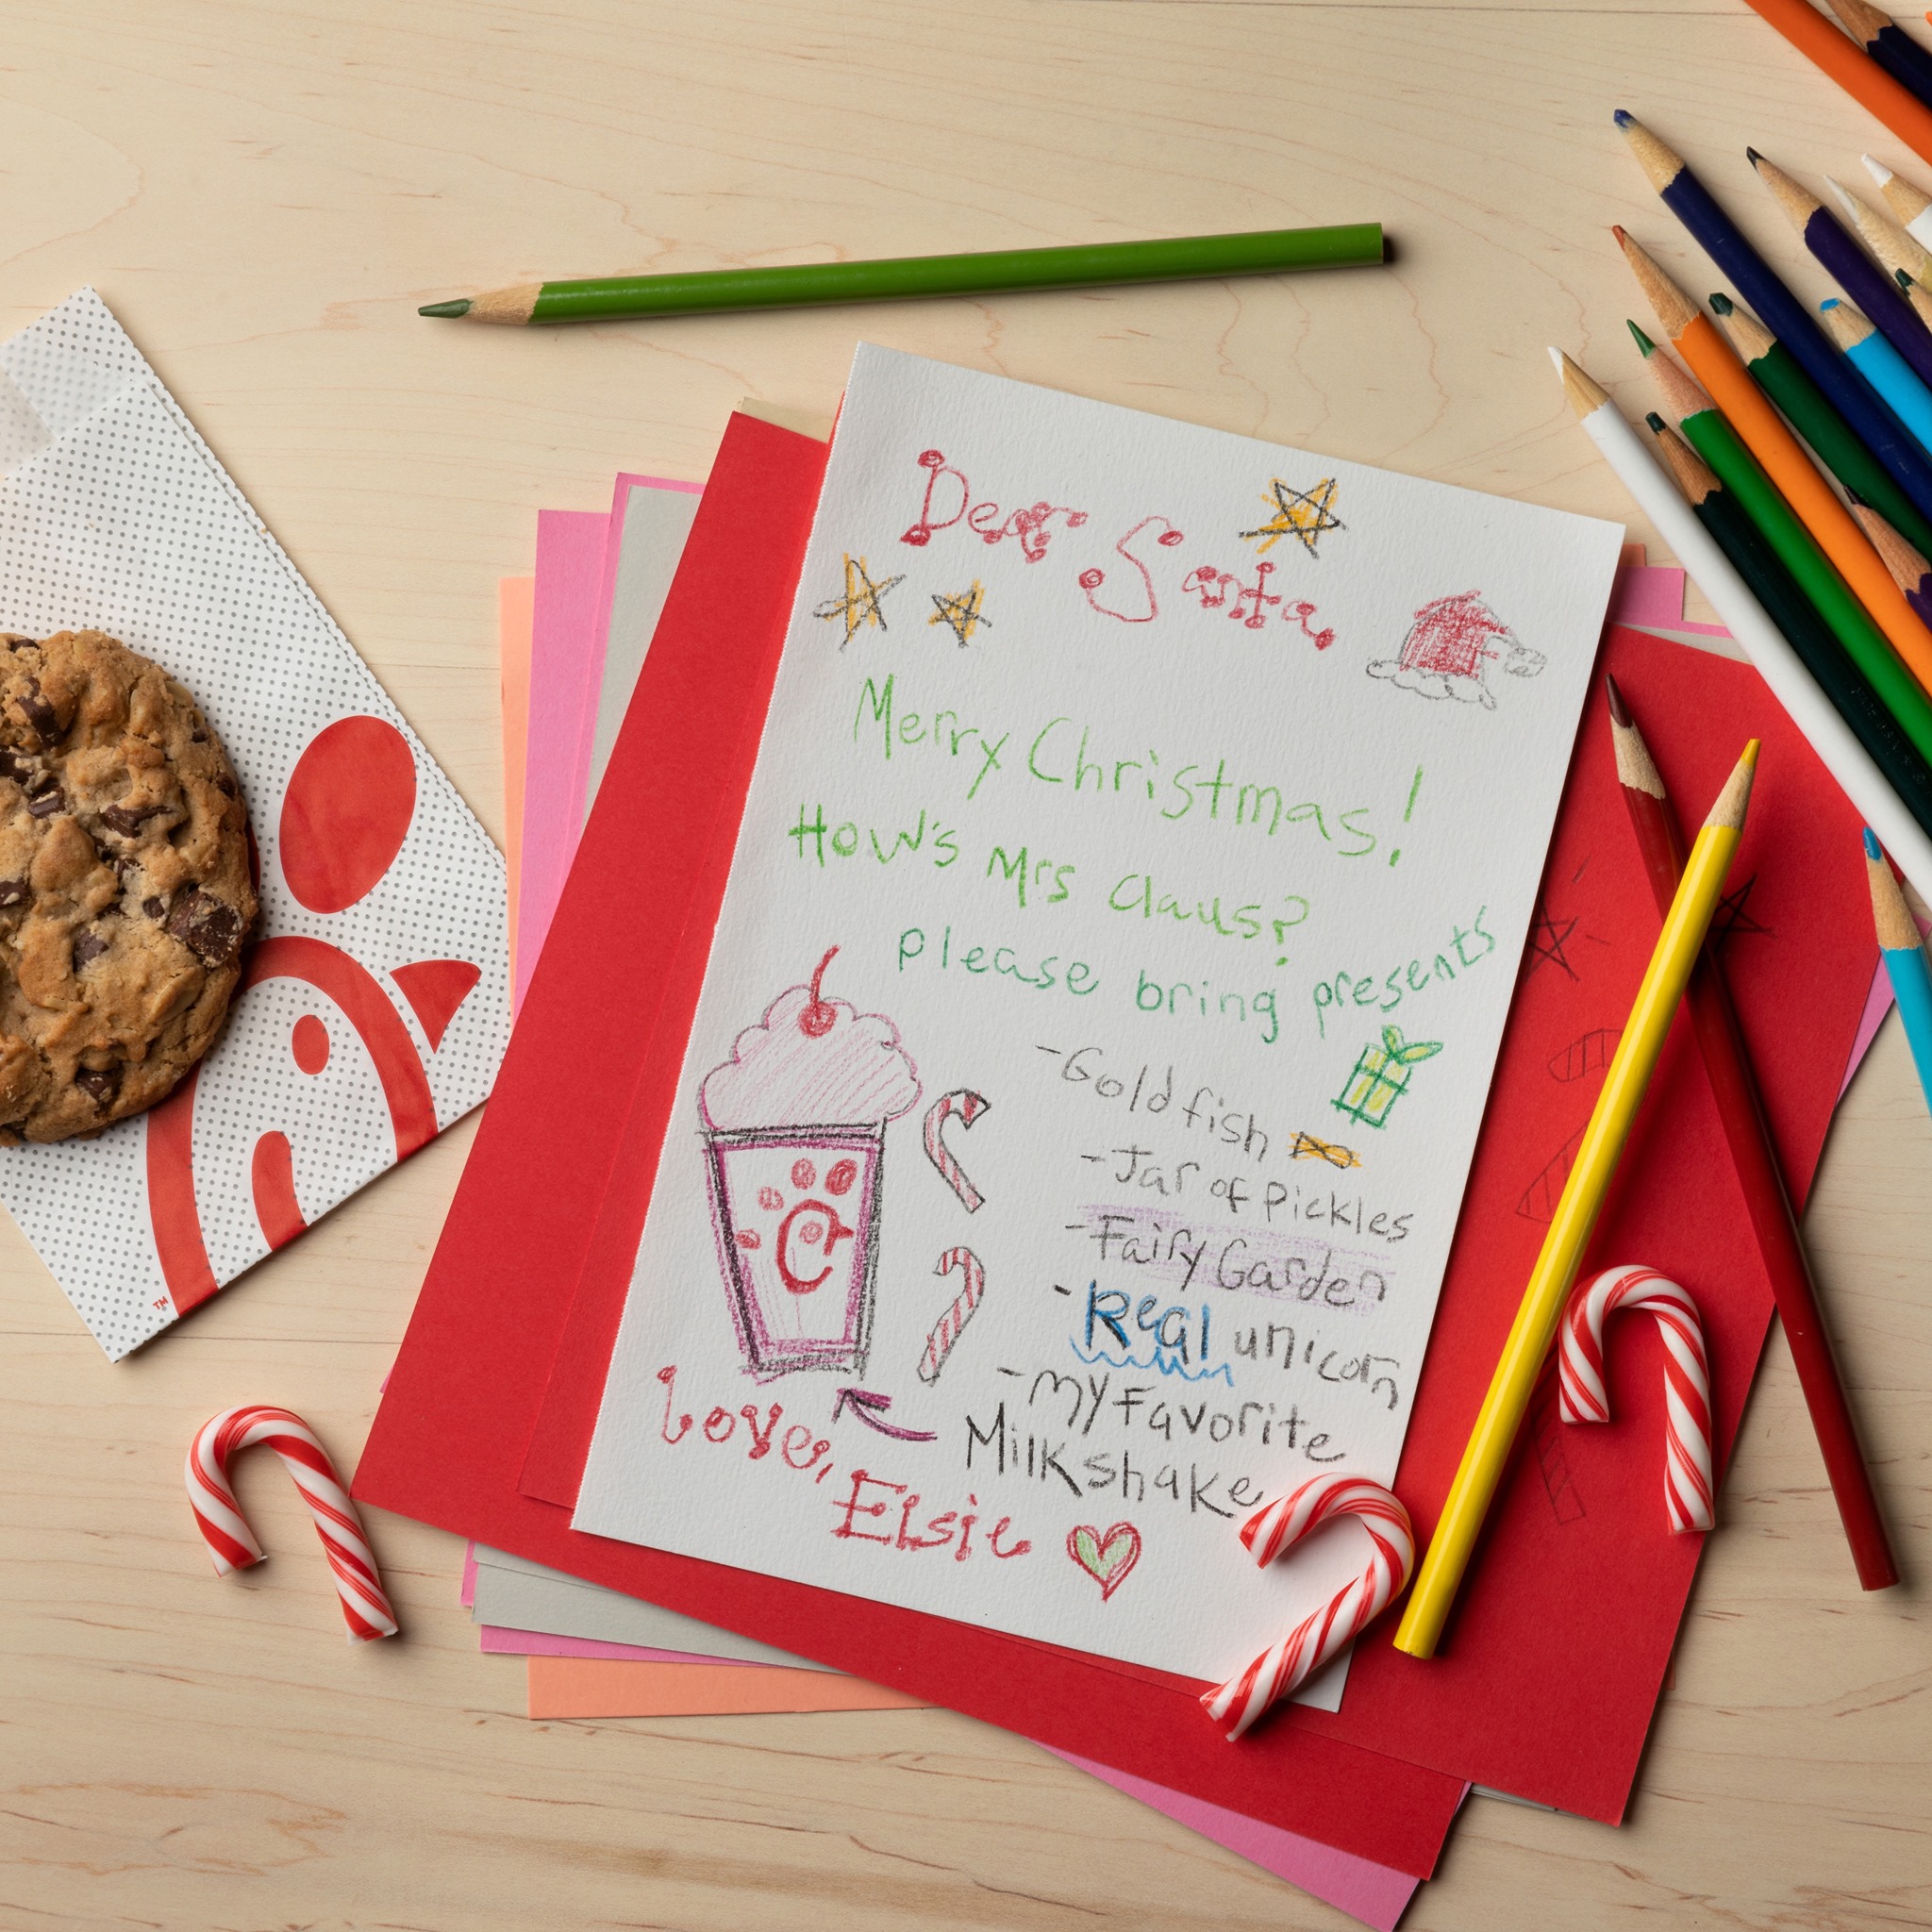 Dear Santa,
Merry Christmas!
How's Mrs Claus?
please bring presents
-Goldfish
-Jar of pickles
-Fairy Garden
-Real unicorn
-my Favorite
Milkshake
Love,
Elsie
TM